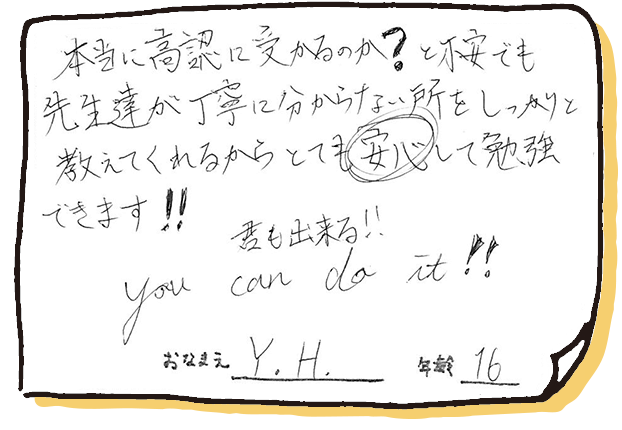 本当に高認に受かるのか?と不安でも
先生達が丁寧に分からない所をしっかりと
教えてくれるからとても安心して勉強
できます!!
君も出来る!!
you can do it!!
おなまえ Y.H. 年齢 16